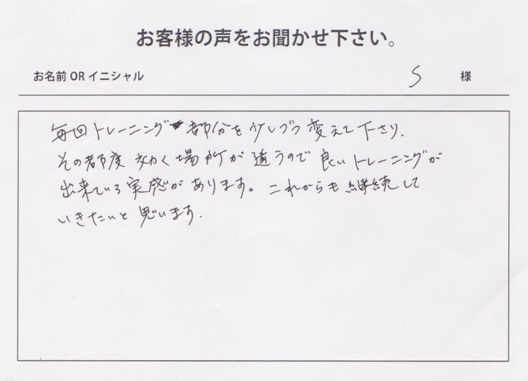 お客様の声をお聞かせ下さい。
お名前 OR イニシャル S 様
毎回トレーニング部分を少しづつ変えて下さり、
その都度効く場所が違うので良いトレーニングが
出来ている実感があります。これからも継続して
いきたいと思います。